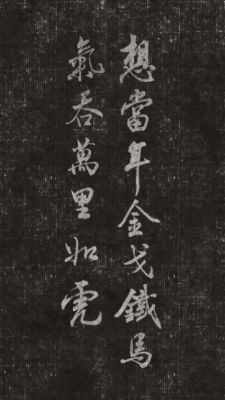 想當年金戈鐵馬
氣吞萬里如虎